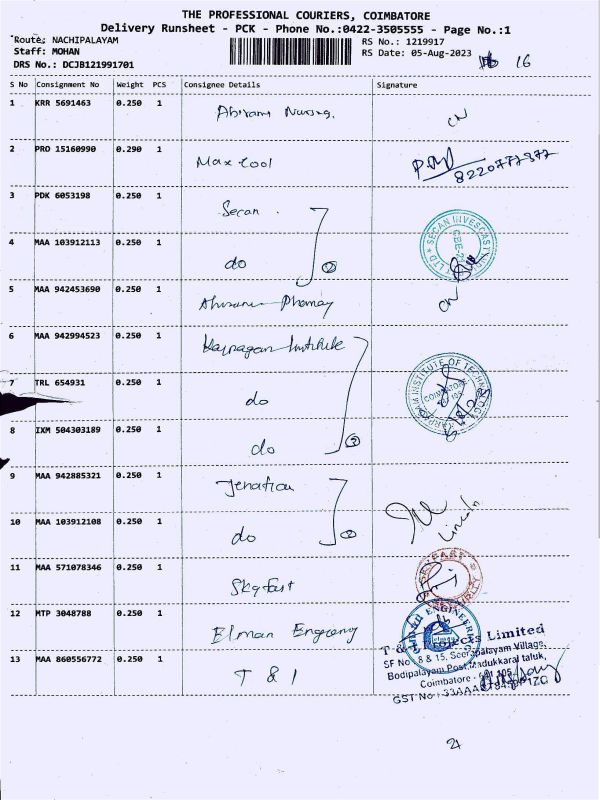 THE PROFESSIONAL COURIERS, COIMBATORE
Delivery Runsheet - PCK - Phone No.:0422-3505555 - Page No.:1
Route: NACHIPALAYAM
RS No.: 1219917
Staff: MOHAN
RS Date: 05-Aug-2023
16
DRS No.: DCJB121991701
S No Consignment No Weight PCS Consignee Details Signature
1 KRR 5691463 0.250 1 Abirami Nursing.
CN
2 PRO 15160990 0.290 1 Max Cool
8220777377
3 PDK 6053198 0.250 1 Secan
4 MAA 103912113 0.250 1 do 2
SECAN INVESCAST
LTD
5 MAA 942453690 0.250 1 Abirami Phamay
CN
6 MAA 942994523 0.250 1 Institute
7 TRL 654931 0.250 1 do
KARPAGAM INSTITUTE OF TECHNOLOGY
COIMBATORE
8 IXM 504303189 0.250 1 do 3
9 MAA 942885321 0.250 1
10 MAA 103912108 0.250 1 do 2
Lincoln
11 MAA 571078346 0.250 1 Skyfast
12 MTP 3048788 0.250 1 Elman Engneeng
13 MAA 860556772 0.250 1 T & I
T & I Projects Limited
SF No. 8 & 15, Seerapalayam Village,
Bodipalayam Post, Madukkarai taluk,
Coimbatore - 641 105
GST No : 33AAA
21